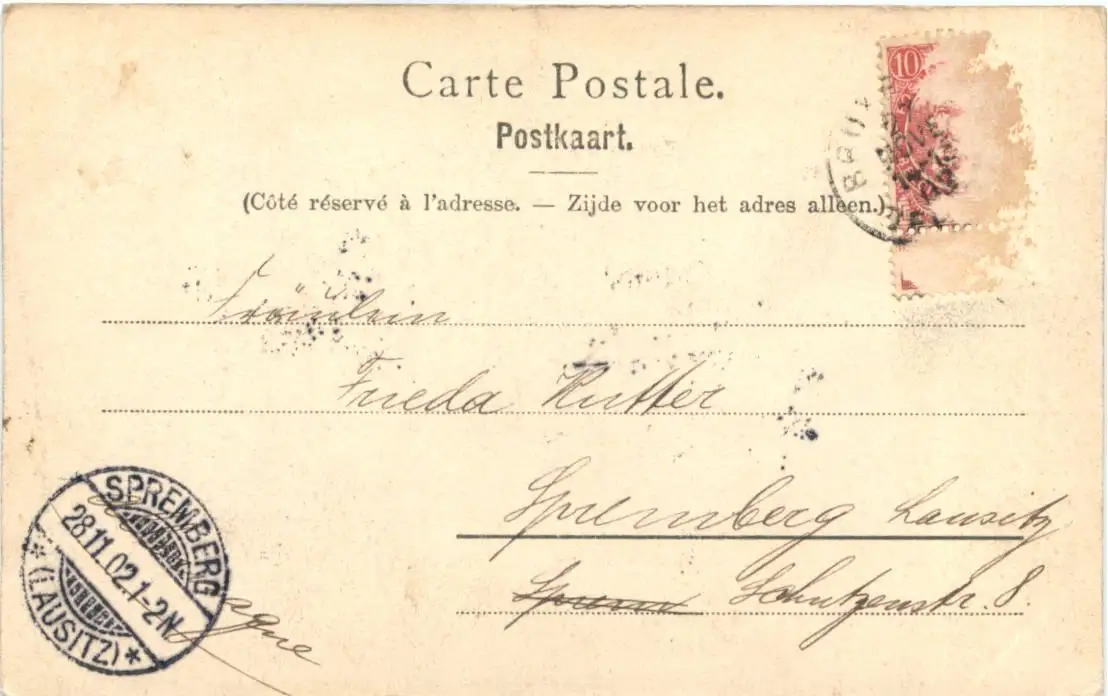 Carte Postale.
Postkaart.
(Côté réservé à l'adresse. — Zijde voor het adres alleen.)
10
Fräulein
Frieda Rutter
Spremberg Lausitz
Schutzenstr. 8.
SPREMBERG
28.11.02.1-2N.
*(LAUSITZ)*